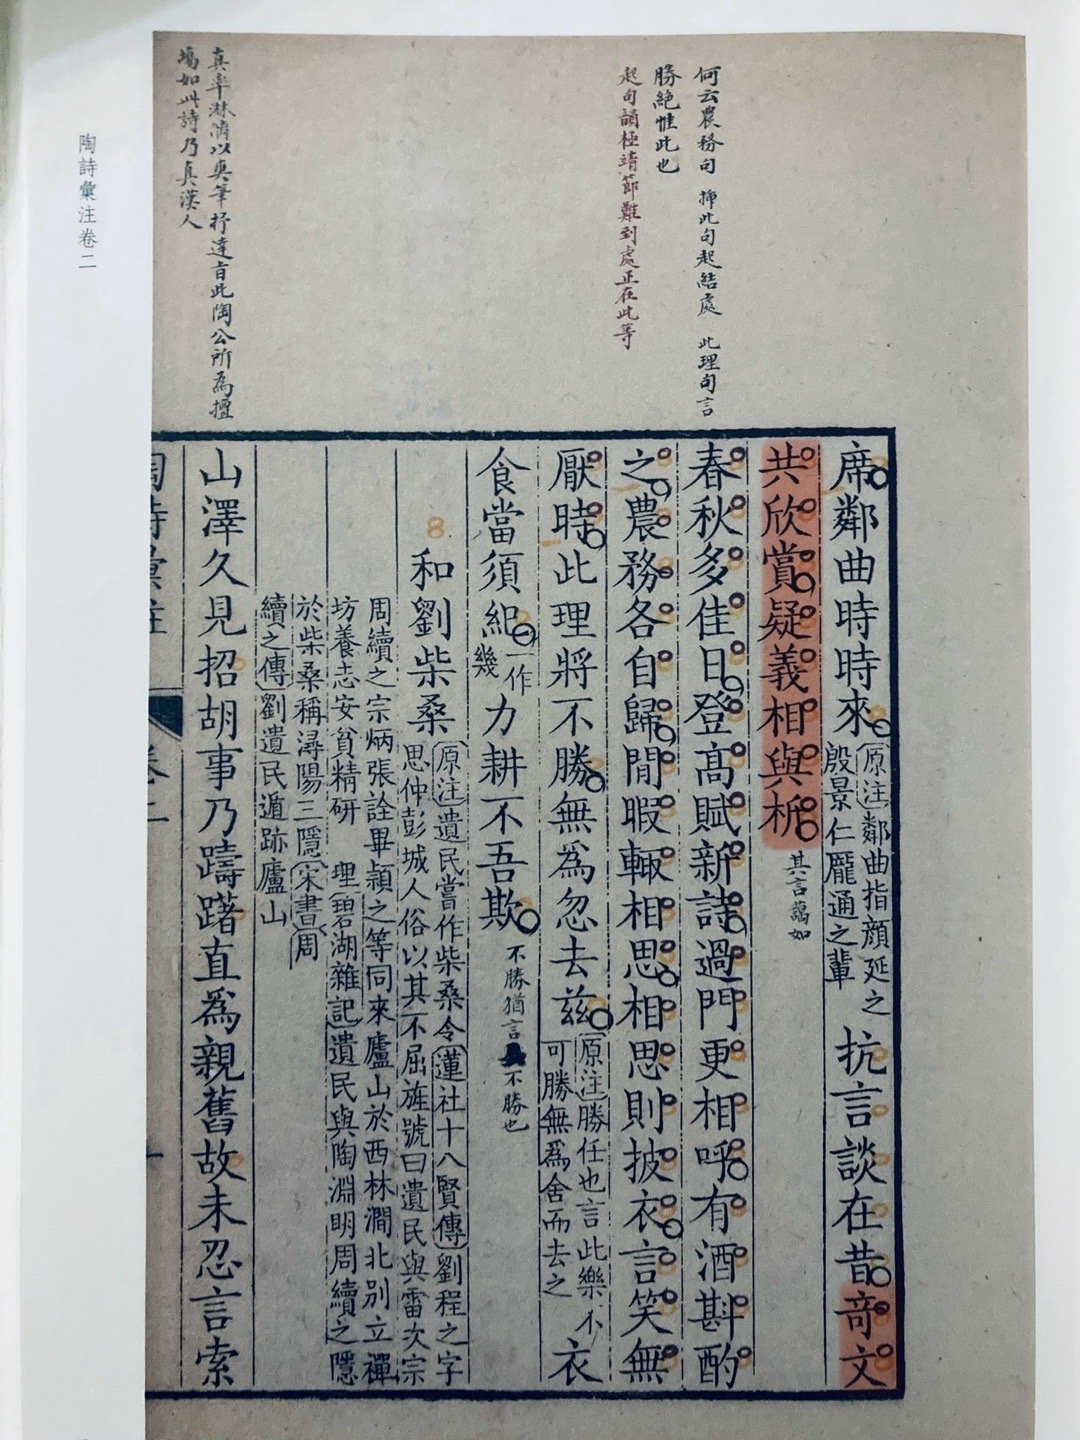 陶詩彙注卷二
何云農務句 揷此句起結處 此理句言
勝絶惟此也
起句誦極靖節難到處正在此等
真率淋漓以奥筆抒達旨此陶公所為擅
塲如此詩乃真漢人
席鄰曲時時來原注鄰曲指顔延之殷景仁龐通之輩抗言談在昔奇文
共欣賞疑義相與析其言藹如
春秋多佳日登高賦新詩過門更相呼有酒斟酌
之農務各自歸閒暇輒相思相思則披衣言笑無
厭時此理將不勝無為忽去兹原注勝任也言此樂不可勝無為舍而去之衣
食當須紀一作幾力耕不吾欺不勝猶言不勝也
和劉柴桑原注遺民嘗作柴桑令蓮社十八賢傳劉程之字
思仲彭城人俗以其不屈旌號曰遺民與雷次宗
周續之宗炳張詮畢頴之等同來廬山於西林澗北别立禪
坊養志安貧精研 理碧湖雜記遺民與陶淵明周續之隱
於柴桑稱潯陽三隱宋書周
續之傳劉遺民遁跡廬山
山澤久見招胡事乃躊躇直為親舊故未忍言索
陶詩彙註 卷二